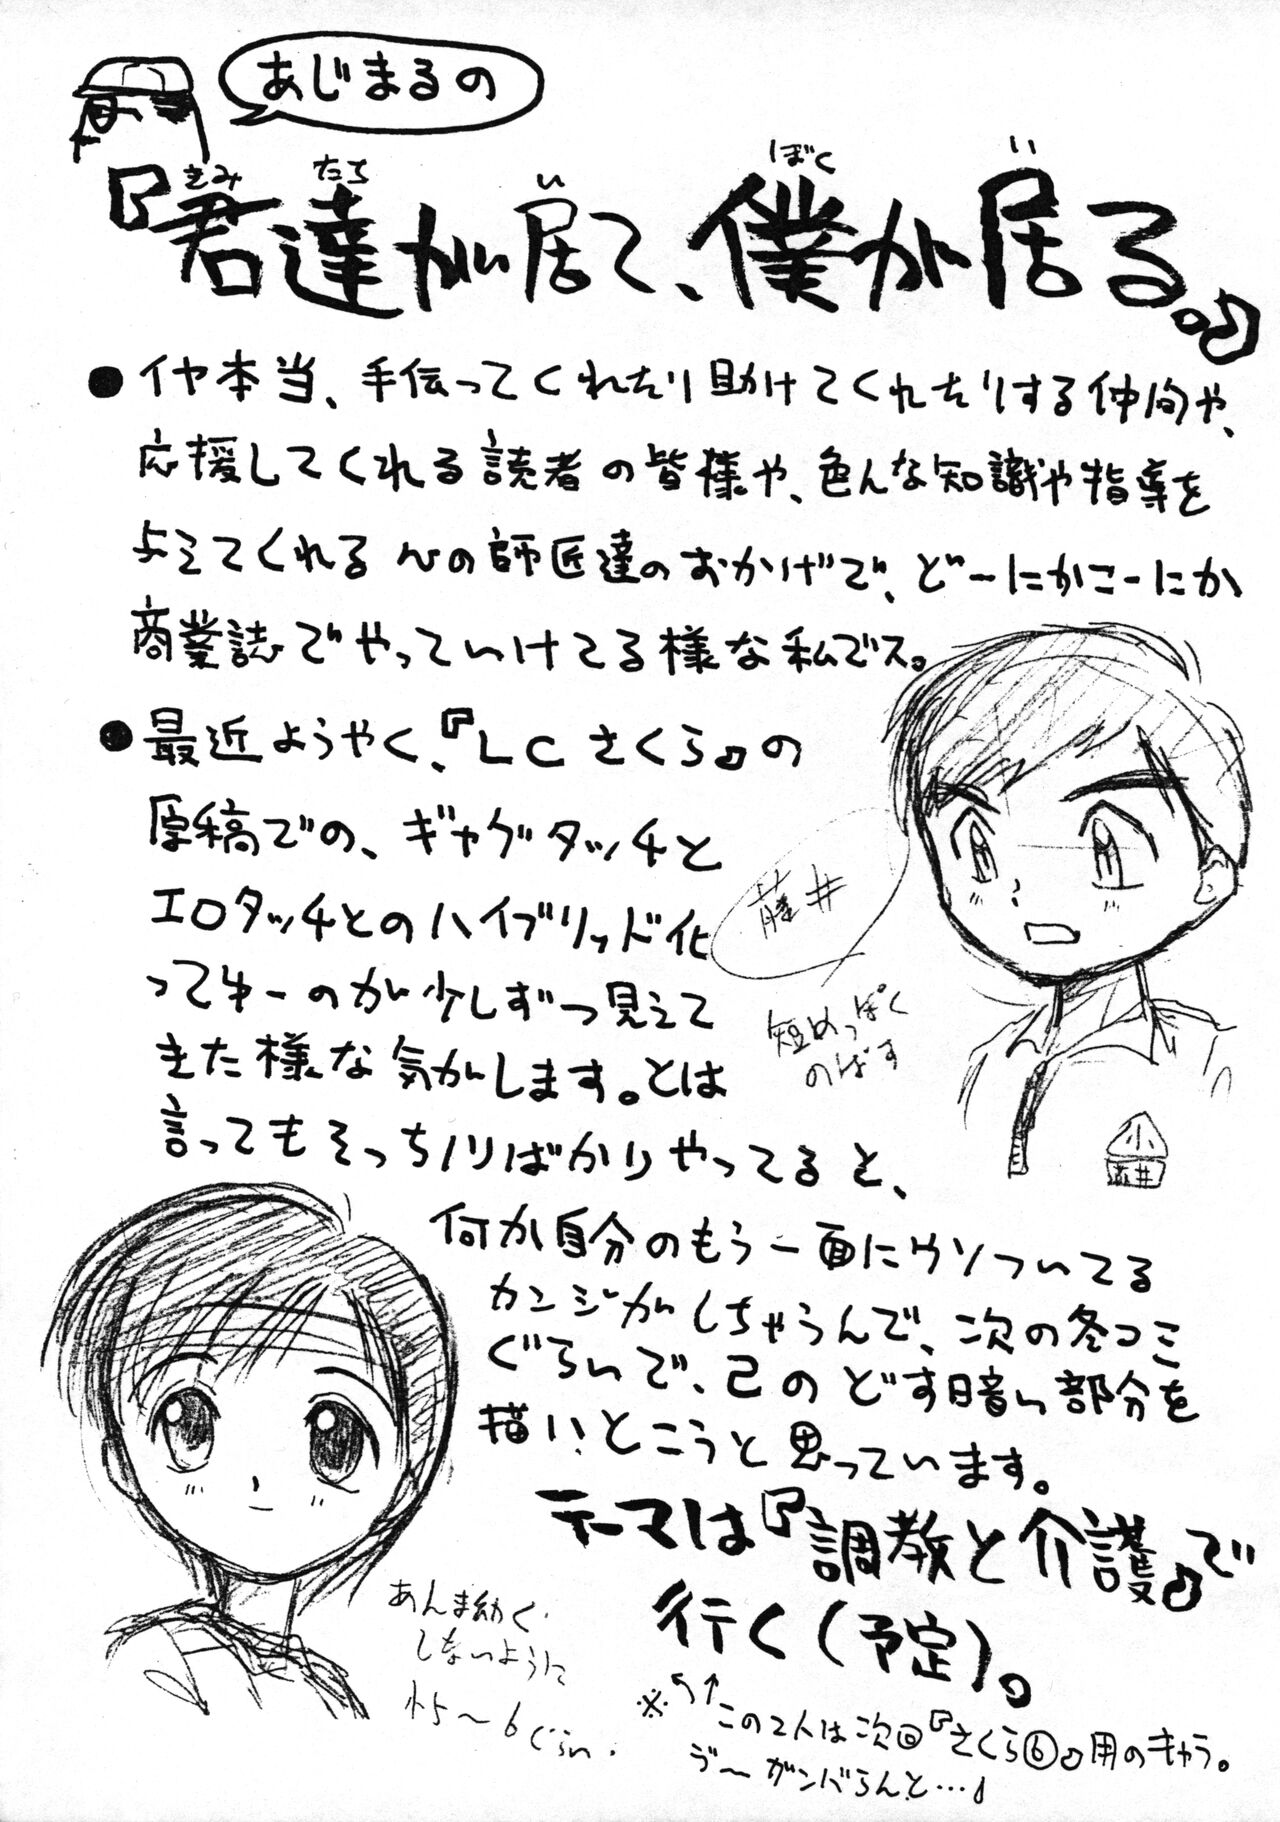 あじまるの
『君達が居て、僕が居る。』
きみ たち い ぼく い
●イヤ本当、手伝ってくれたり助けてくれたりする仲間や、
応援してくれる読者の皆様や、色んな知識や指導を
与えてくれる心の師匠達のおかげで、どーにかこーにか
商業誌でやっていけてる様な私でス。
●最近ようやく、『LCさくら』の
原稿での、ギャグタッチと
エロタッチとのハイブリッド化
ってゆーのが少しずつ見えて
きた様な気がします。とは
言ってもそっちノリばかりやってると、
何か自分のもう一面にウソついてる
カンジがしちゃうんで、次の冬コミ
ぐらいで、己のどす暗い部分を
描いとこうと思っています。
テーマは『調教と介護』で
行く(予定)。
藤井
短めっぽく
のばす
小
あんま幼く
しないように
小5〜6ぐらい.
※↰↑この2人は次回『さくら⑥』用のキャラ。
う〜ガンバらんと…♪